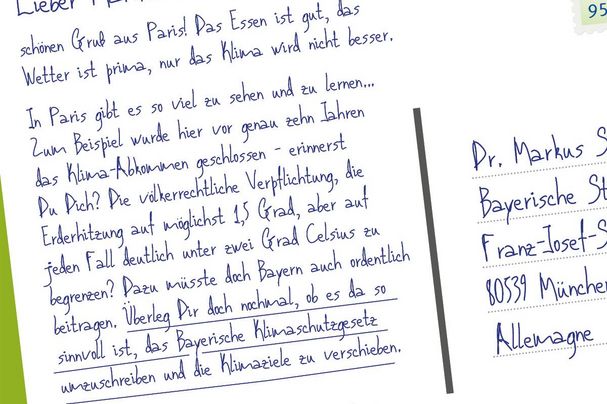 Lieber
schönen Gruß aus Paris! Das Essen ist gut, das
Wetter ist prima, nur das Klima wird nicht besser.
In Paris gibt es so viel zu sehen und zu lernen...
Zum Beispiel wurde hier vor genau zehn Jahren
das Klima-Abkommen geschlossen - erinnerst
Du Dich? Die völkerrechtliche Verpflichtung, die
Erderhitzung auf möglichst 1,5 Grad, aber auf
jeden Fall deutlich unter zwei Grad Celsius zu
begrenzen? Dazu müsste doch Bayern auch ordentlich
beitragen. Überleg Dir doch nochmal, ob es da so
sinnvoll ist, das Bayerische Klimaschutzgesetz
umzuschreiben und die Klimaziele zu verschieben.
95
Dr. Markus S
Bayerische St
Franz-Josef-S
80539 München
Allemagne